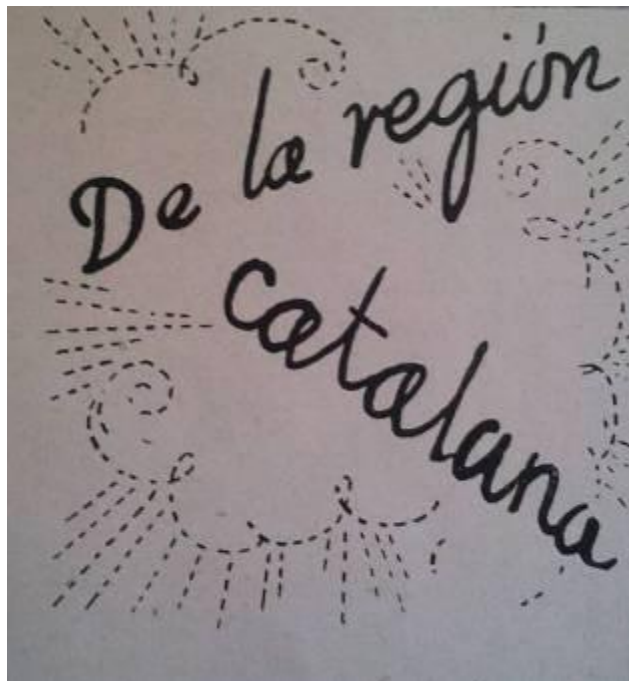 De la región
catalana